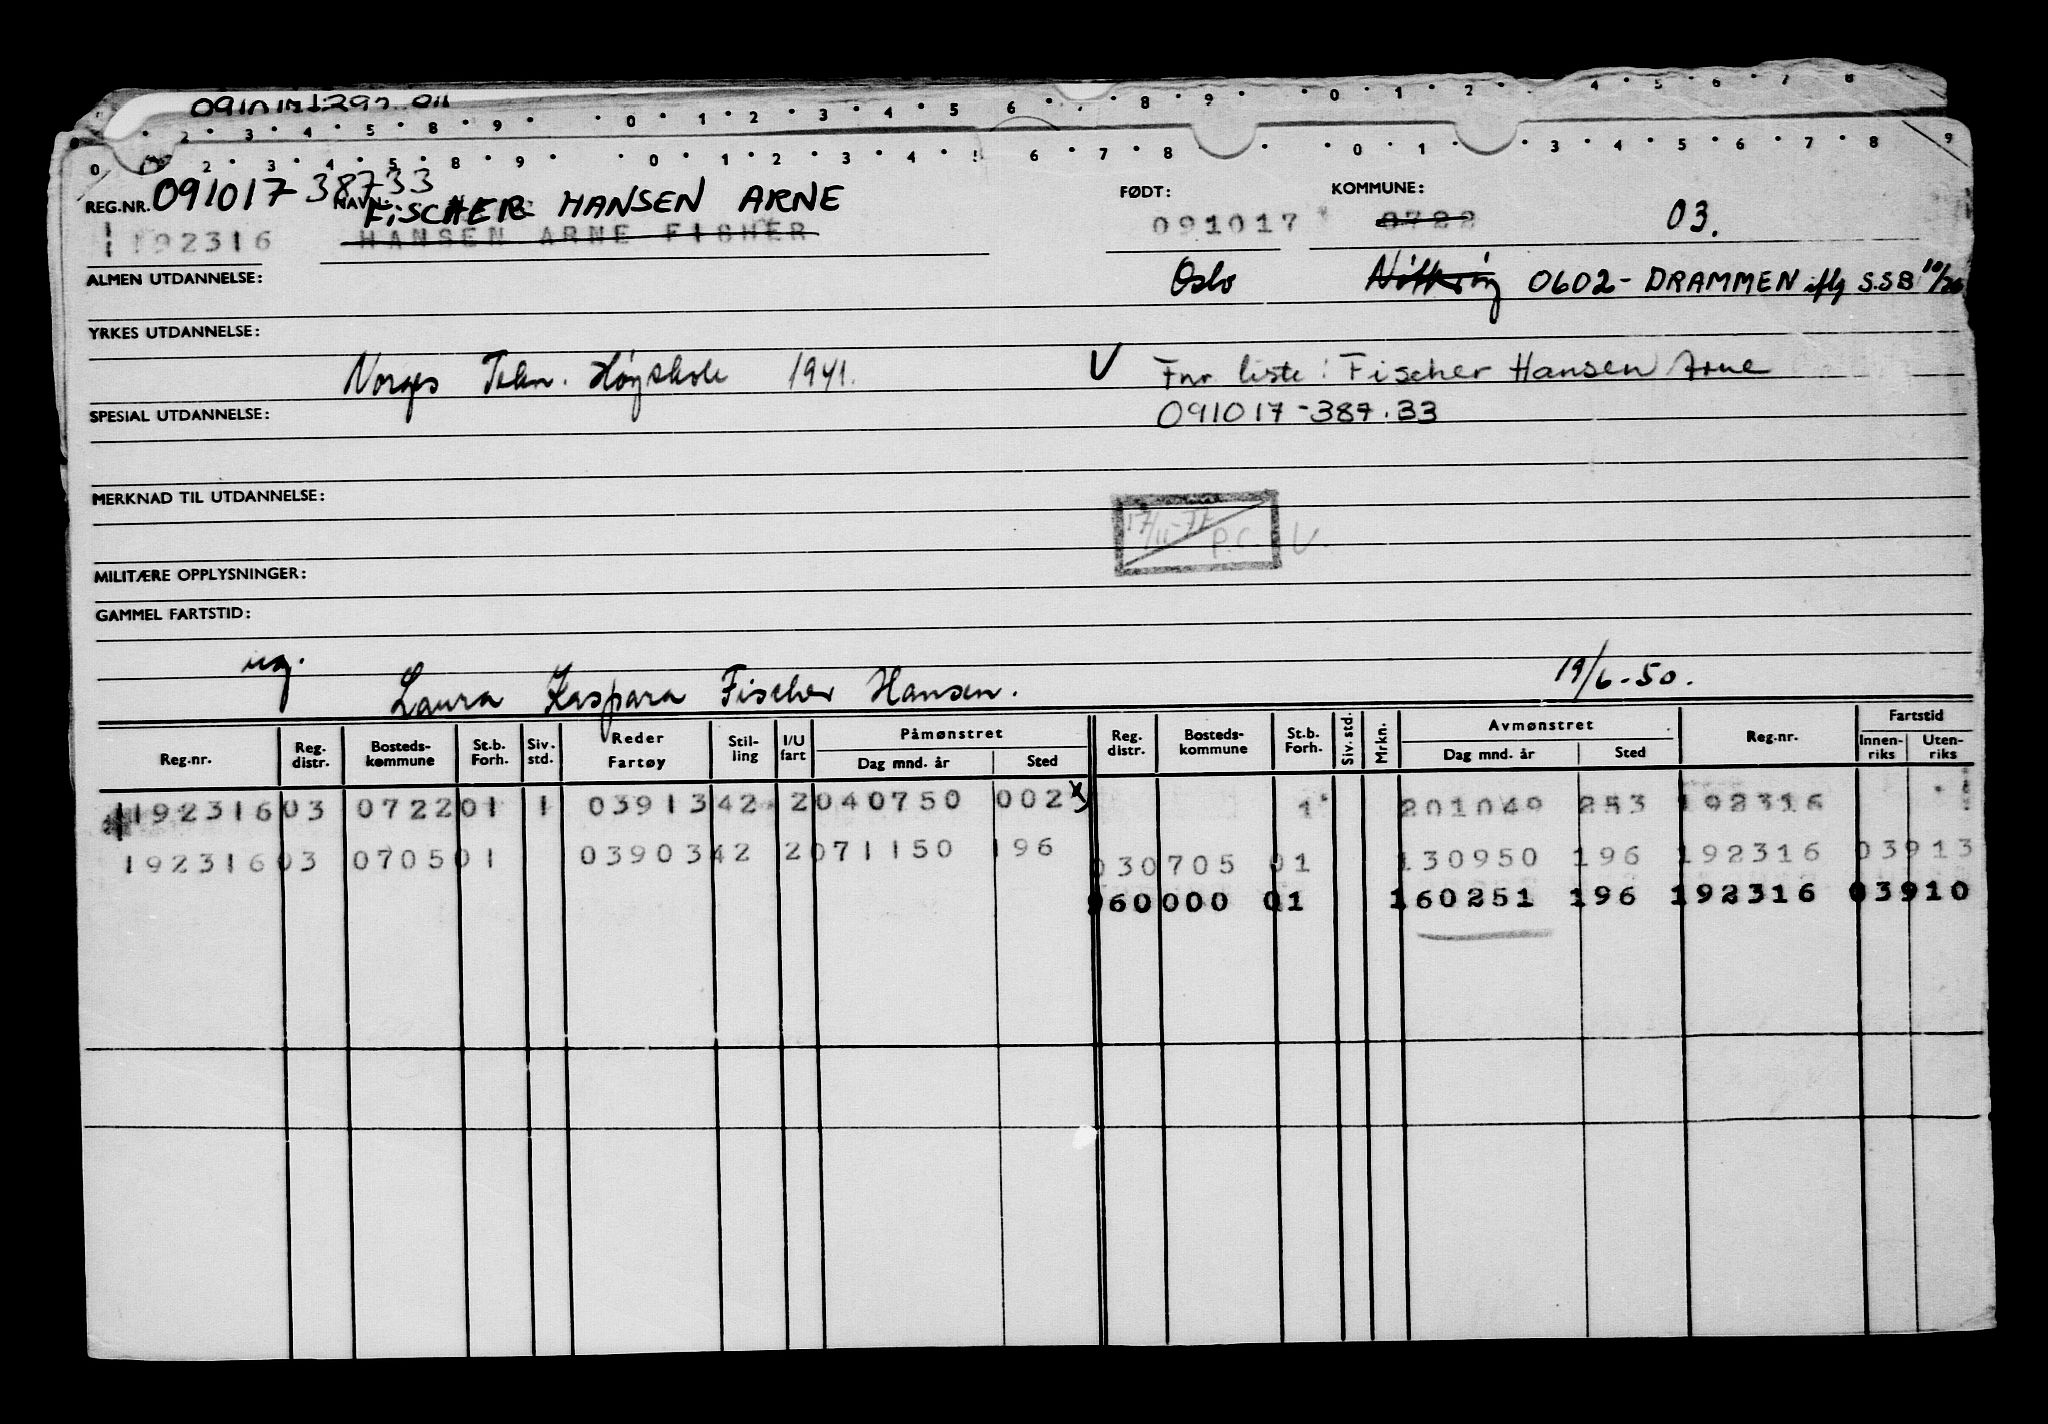 2 3 4 5 8 9 0 1 2 3 4 5 6 8 9 0 1 2 4 5 6 7 8
0 2 3 4 5 8 9 0 1 2 3 4 5 6 7 8 0 1 3 4 5 6 7 8 9
REG.NR. 091017-38733 NAVN: FISCHER HANSEN ARNE FØDT: KOMMUNE:
192316 HANSEN ARNE FISHER 091017 0722 03.
ALMEN UTDANNELSE: Oslo Nøtterøy 0602-DRAMMEN iflg S.S.B
YRKES UTDANNELSE:
Norges Tekn. Høyskole 1941. V Fnr liste: Fischer Hansen Arne
SPESIAL UTDANNELSE: 091017-387.33
MERKNAD TIL UTDANNELSE:
17/11-77 P.C. V.
MILITÆRE OPPLYSNINGER:
GAMMEL FARTSTID:
ug. Laura Kaspara Fischer Hansen. 19/6-50.
Reg.nr. Reg. distr. Bosteds-kommune St.b. Forh. Siv. std. Reder Fartøy Stil-ling I/U fart Påmønstret Dag mnd. år Sted Reg. distr. Bosteds-kommune St.b. Forh. Siv. std. Mrkn. Avmønstret Dag mnd. år Sted Reg.nr. Fartstid Innen-riks Uten-riks
192316 03 0722 01 1 03913 42 2 040750 002 x) 1 201049 253 192316
192316 03 0705 01 03903 42 2 071150 196 03 0705 01 130950 196 192316 03913
060000 01 160251 196 192316 03910